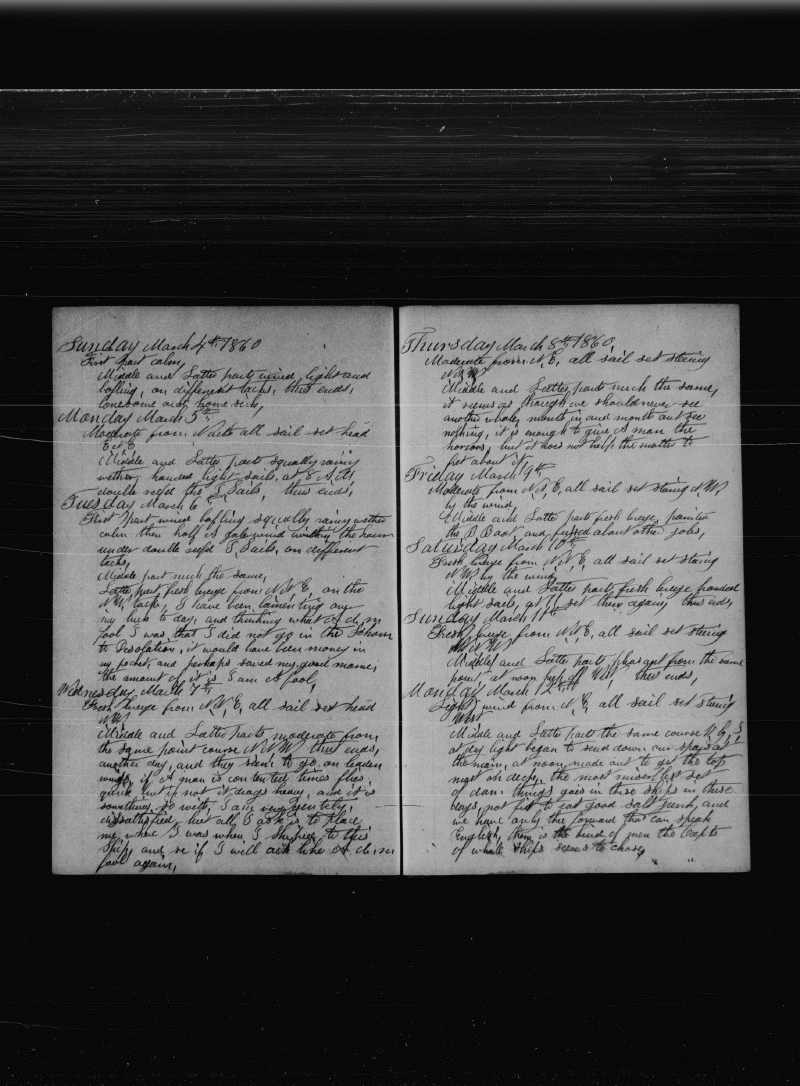 Sunday March 4th 1860
First part calm,
Middle and Latter parts wind light and
bafling, on different tacks, thus ends,
lonesome and home sick,
Monday March 5th
Moderate from North all sail set head
E & E
Middle and Latter parts squally rainy
wether, handed light sails, at 8 A,M,
double reefd the T, Sails, thus ends,
Tuesday March 6th
First part wind bafling squally rainy wether
calm then half a gale wind within the hour
under double reefd T, Sails, on different
tacks,
Middle part much the same,
Latter part fresh breeze from N,N,E, on the
N,W, tack, I have been lamenting over
my luck to day, and thinking what A d..m
fool I was, that I did not go in the Schoon
to Desolation, it would have been money in
my pocket, and perhaps saved my good name,
the amount of it is I am A fool,
Wednesday March 7th
Fresh breeze from N,N,E, all sail set head
N,W,
Middle and Latter parts moderate from
the same point course N,N,W, thus ends,
another day, and they seem to go on leaden
wings, if A man is contented times flies
quick but if not it drags heavy, and it is
something so with, I am very gentily,
dissatisfied, but all I ask is to place
me, where I was when I shipped to this
Ship, and se if I will ack like A d..m
fool again,
Thursday March 8th 1860,
Moderate from N, E, all sail set steering
N,
Middle and Latter parts much the same,
it seems as though we should never see
another whale, month in and month out see
nothing, it is enough to give A man the
horrors, but it does not help the matter to
fret about it,
Friday March 9th
Moderate from N,N,E, all sail set steering N,W,
by the wind,
Middle and Latter parts fresh breeze, painted
the B Boat, and fussed about other jobs,
Saturday March 10th
Fresh breeze from N,N,E, all sail set steering
N,W, by the wind
Middle and Latter parts fresh breeze handed
light sails, at 7 set them again, thus ends,
Sunday March 11th
Fresh breeze from N,N,E, all sail set steering
Middle and Latter parts pleasant from the same
point, at noon kept off W, thus ends,
Monday March 12th
Light wind from N, E, all sail set steering
West
Middle and Latter parts the same course W, by, S,
at day light began to send down our spars at
the main, at noon, made out to get the top
mast on deck, the most miserblest set
of dam things goes in these ships in these
days, not fit to eat good salt junk, and
we have only the forward that can speak
English, them is the kind of men the Capts
of whale ships seems to chose,